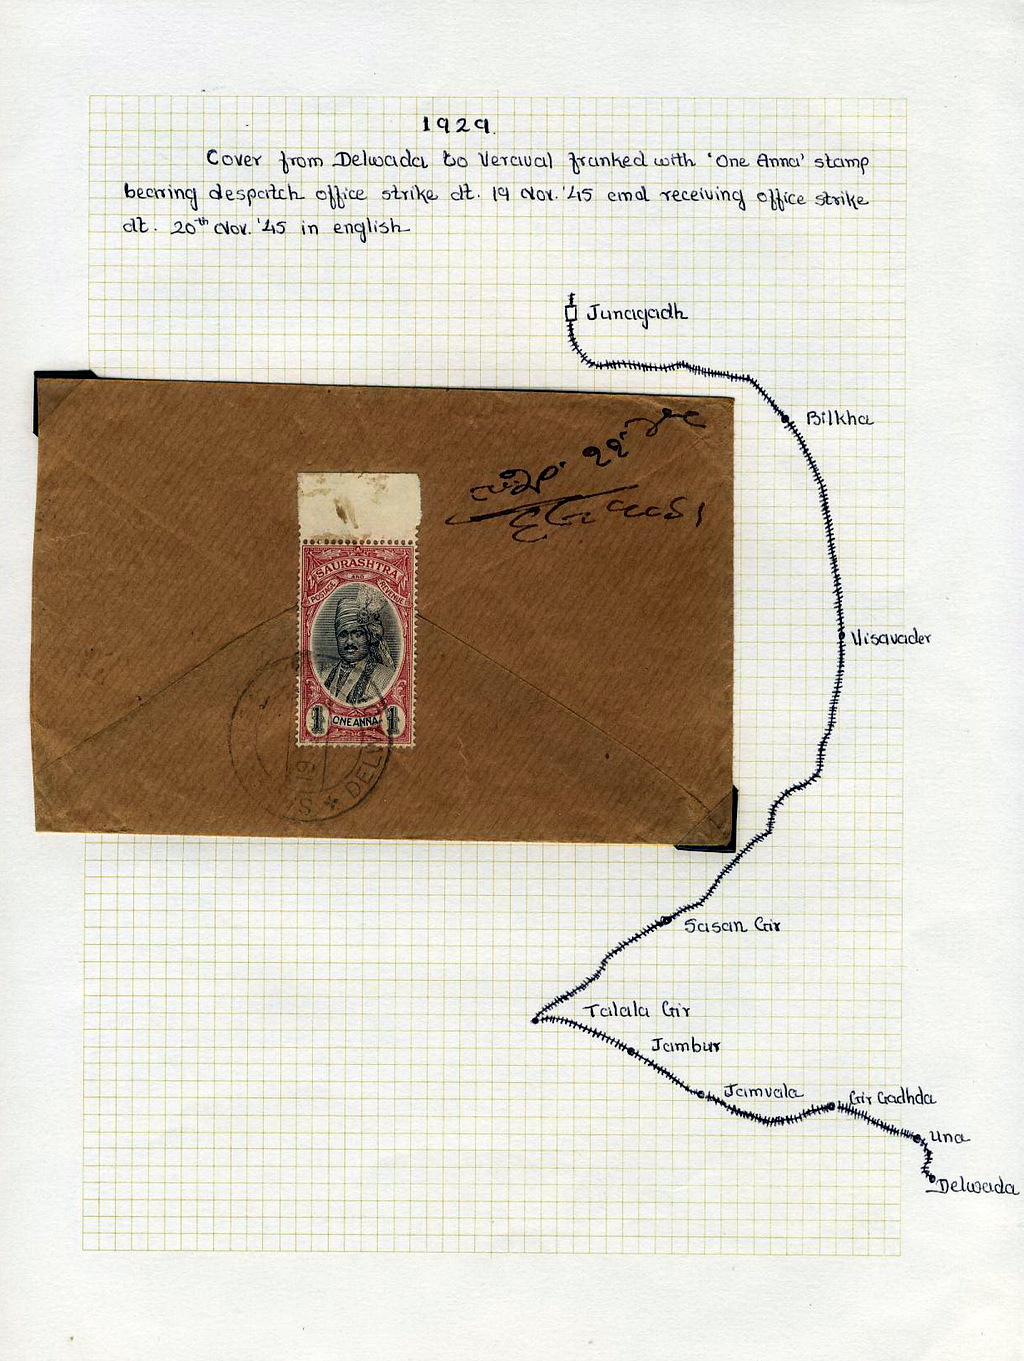 1929.
Cover from Delwada to Veraval franked with 'One Anna' stamp
bearing despatch office strike dt. 19 Nov. '45 and receiving office strike
dt. 20th Nov. '45 in english
Junagadh
Bilkha
SAURASHTRA
POSTAGE AND REVENUE
1 ONE ANNA 1
19
DELW
Visavader
Sasan Gir
Talala Gir
Jambur
Jamvala
Gir Gadhda
Una
Delwada